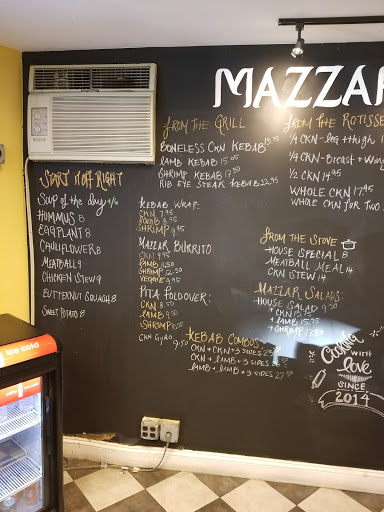 MAZZAR
START IT OFF RIGHT
Soup of the day 4/6
HUMMUS 8
EGGPLANT 8
CAULIFLOWER 8
MEATBALL 9
CHICKEN STEW 9
BUTTERNUT SQUASH 8
SWEET POTATO 8
FROM THE GRILL
BONELESS CKN KEBAB 15.75
LAMB KEBAB 15.95
SHRIMP KEBAB 17.50
RIB EYE STEAK KEBAB 22.95
KEBAB WRAP:
CKN 7.95
LAMB 8.95
SHRIMP 9.95
MAZZAR BURRITO
CKN 9.95
LAMB
SHRIMP 12.50
VEGGIE
PITA FOLDOVER:
CKN 8.50
LAMB 9.50
SHRIMP
CKN GYRO 9.50
KEBAB COMBOS
CKN + CKN + 3 SIDES
CKN + LAMB + 3 SIDES
LAMB + LAMB + 3 SIDES
FROM THE ROTISSE
1/4 CKN - leg + thigh
1/4 CKN - Breast + Wing
1/2 CKN 14.95
WHOLE CKN 17.95
WHOLE CKN FOR TWO
FROM THE STOVE
HOUSE SPECIAL 8
MEATBALL MEAL 14
CKN STEW 14
MAZZAR SALADS:
HOUSE SALAD 9.50
+ CKN
+ LAMB 15.95
+ SHRIMP 17.50
Cooking
with
love
SINCE
2014
ice cold